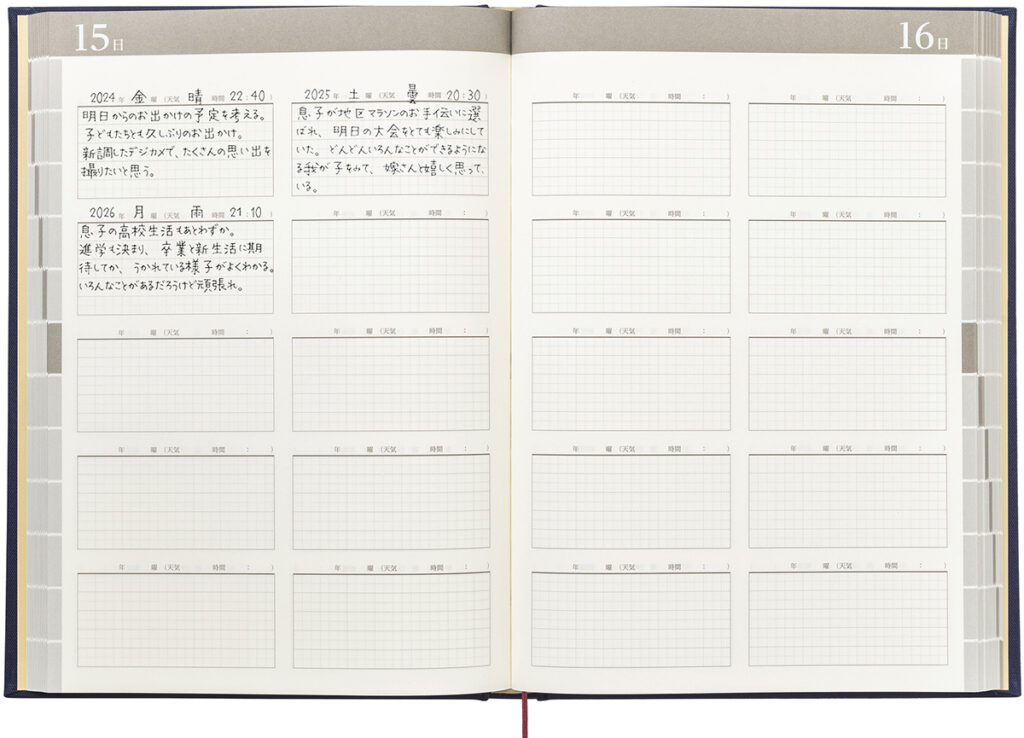 15日
2024年 金曜（天気 晴 時間 22:40）
明日からのお出かけの予定を考える。
子どもたちとも久しぶりのお出かけ。
新調したデジカメで、たくさんの思い出を
撮りたいと思う。
2025年 土曜（天気 曇 時間 20:30）
息子が地区マラソンのお手伝いに選
ばれ、明日の大会をとても楽しみにして
いた。どんどんいろんなことができるようにな
る我が子をみて、嫁さんと嬉しく思って
いる。
2026年 月曜（天気 雨 時間 21:10）
息子の高校生活もあとわずか。
進学も決まり、卒業と新生活に期
待してか、うかれている様子がよくわかる。
いろんなことがあるだろうけど頑張れ。
年 曜（天気 時間 : ）
年 曜（天気 時間 : ）
年 曜（天気 時間 : ）
年 曜（天気 時間 : ）
年 曜（天気 時間 : ）
年 曜（天気 時間 : ）
年 曜（天気 時間 : ）
16日
年 曜（天気 時間 : ）
年 曜（天気 時間 : ）
年 曜（天気 時間 : ）
年 曜（天気 時間 : ）
年 曜（天気 時間 : ）
年 曜（天気 時間 : ）
年 曜（天気 時間 : ）
年 曜（天気 時間 : ）
年 曜（天気 時間 : ）
年 曜（天気 時間 : ）